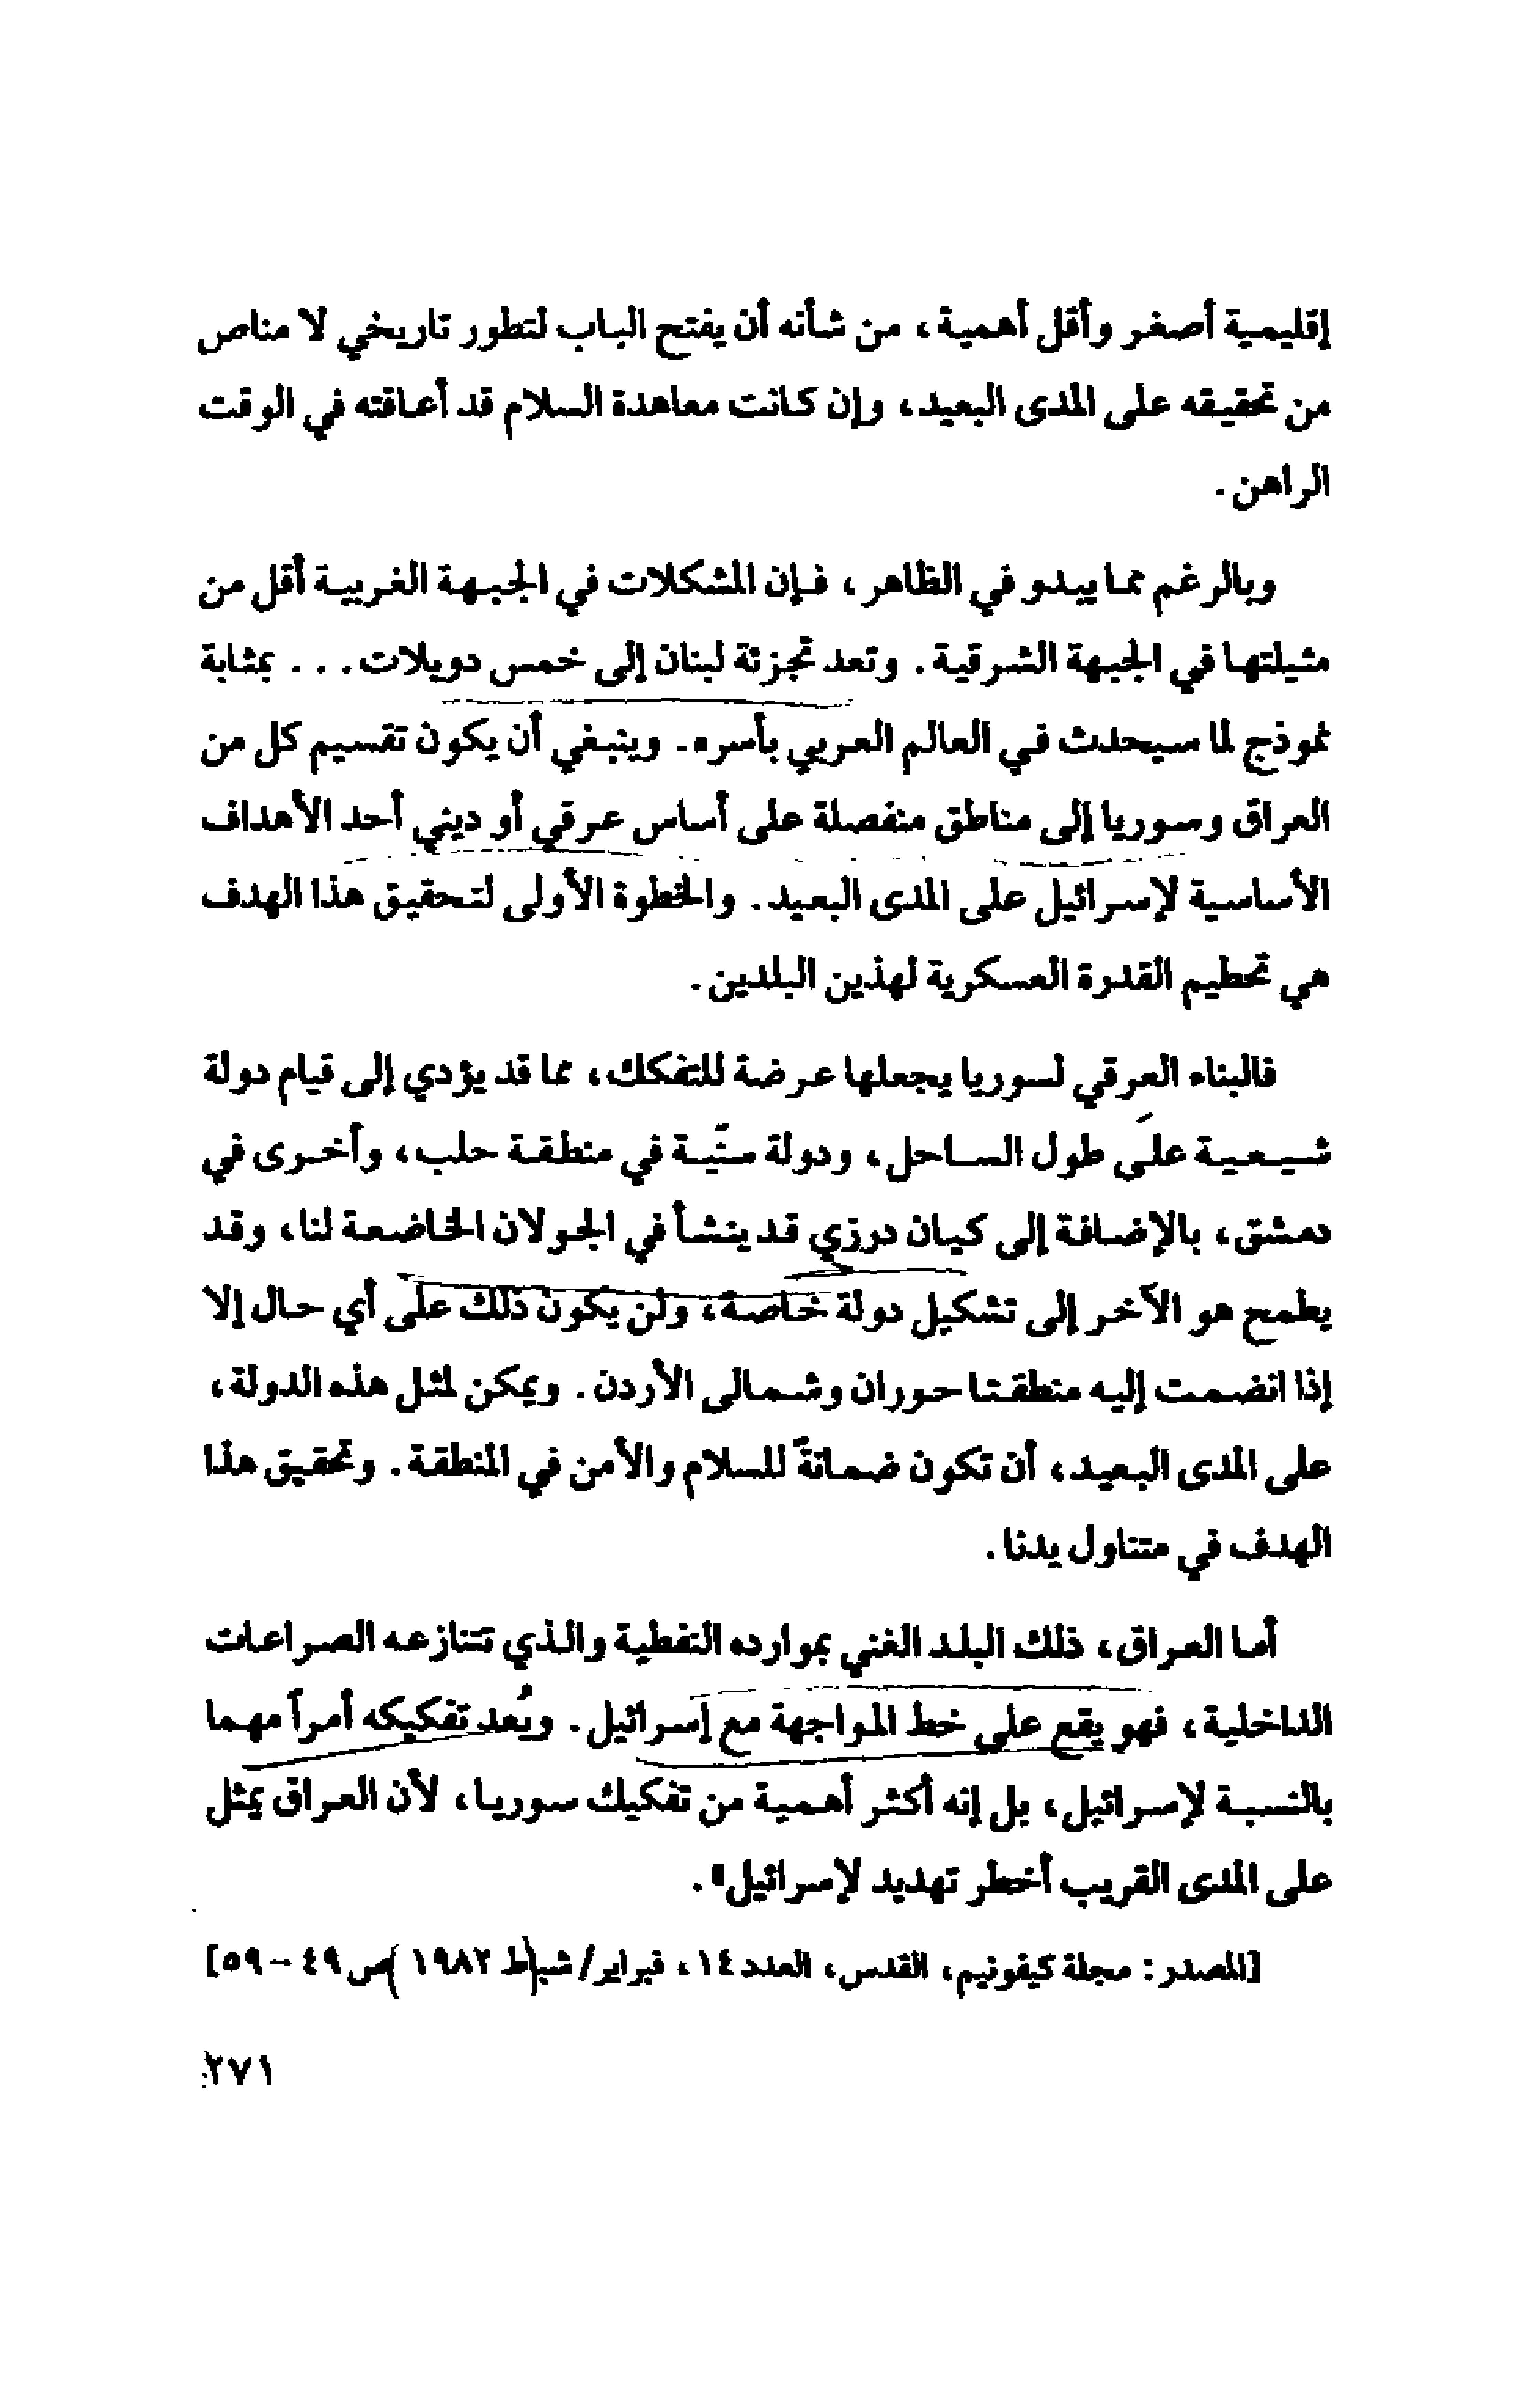 إقليمية أصغر وأقل أهمية، من شأنه أن يفتح الباب لتطور تاريخي لا مناص
من تحقيقه على المدى البعيد، وإن كانت معاهدة السلام قد أعاقته في الوقت
الراهن.
وبالرغم مما يبدو في الظاهر، فإن المشكلات في الجبهة الغربية أقل من
مثيلتها في الجبهة الشرقية. وتعد تجزئة لبنان إلى خمس دويلات... بمثابة
نموذج لما سيحدث في العالم العربي بأسره. وينبغي أن يكون تقسيم كل من
العراق وسوريا إلى مناطق منفصلة على أساس عرقي أو ديني أحد الأهداف
الأساسية لإسرائيل على المدى البعيد. والخطوة الأولى لتحقيق هذا الهدف
هي تحطيم القدرة العسكرية لهذين البلدين.
فالبناء العرقي لسوريا يجعلها عرضة للتفكك، مما قد يؤدي إلى قيام دولة
شيعية على طول الساحل، ودولة سنّية في منطقة حلب، وأخرى في
دمشق، بالإضافة إلى كيان درزي قد ينشأ في الجولان الخاضعة لنا، وقد
يطمح هو الآخر إلى تشكيل دولة خاصة، ولن يكون ذلك على أي حال إلا
إذا انضمت إليه منطقتا حوران وشمالى الأردن. ويمكن لمثل هذه الدولة،
على المدى البعيد، أن تكون ضمانةً للسلام والأمن في المنطقة. وتحقيق هذا
الهدف في متناول يدنا.
أما العراق، ذلك البلد الغني بموارده النفطية والذي تتنازعه الصراعات
الداخلية، فهو يقع على خط المواجهة مع إسرائيل. ويُعد تفكيكه أمراً مهما
بالنسبة لإسرائيل، بل إنه أكثر أهمية من تفكيك سوريا، لأن العراق يمثل
على المدى القريب أخطر تهديد لإسرائيل».
[المصدر: مجلة كيفونيم، القدس، العدد ١٤، فبراير/ شباط ١٩٨٢ ص ٤٩ - ٥٩]
٢٧١